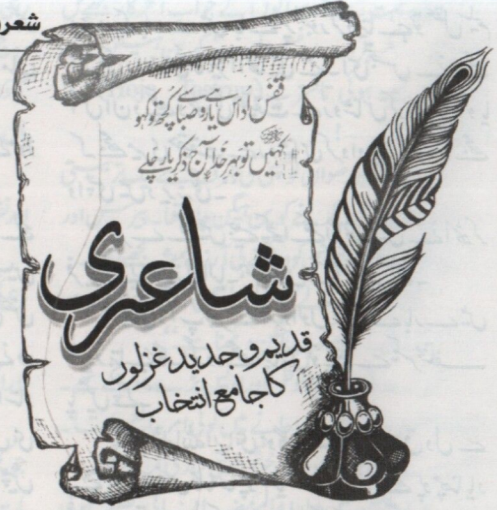 شعر
قفس اُداس ہے یارو صبا سے کچھ تو کہو
کہیں تو بہرِ خدا آج ذکرِ یار چلے
شاعری
قدیم و جدید غزلوں
کا جامع انتخاب